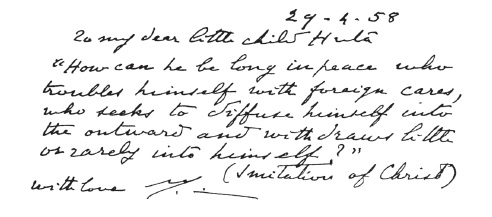 29-4-58
To my dear little child Huta
"How can he be long in peace who
troubles himself with foreign cares,
who seeks to diffuse himself into
the outward and withdraws little
or rarely into himself?"
(Imitation of Christ)
with love